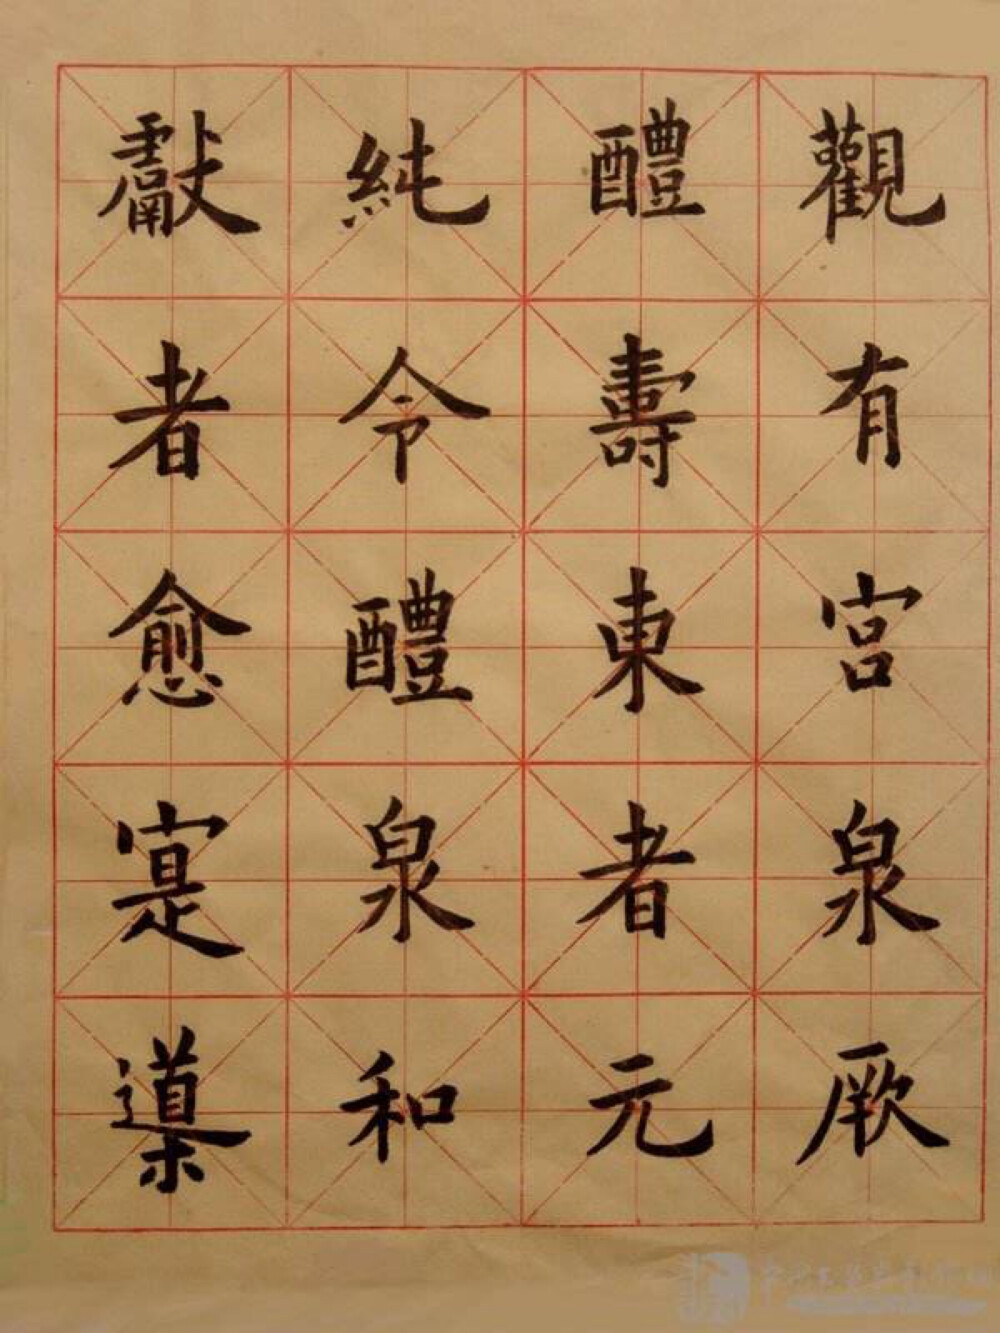 觀有宮泉厥
醴壽東者元
純令醴泉和
獻者愈寔